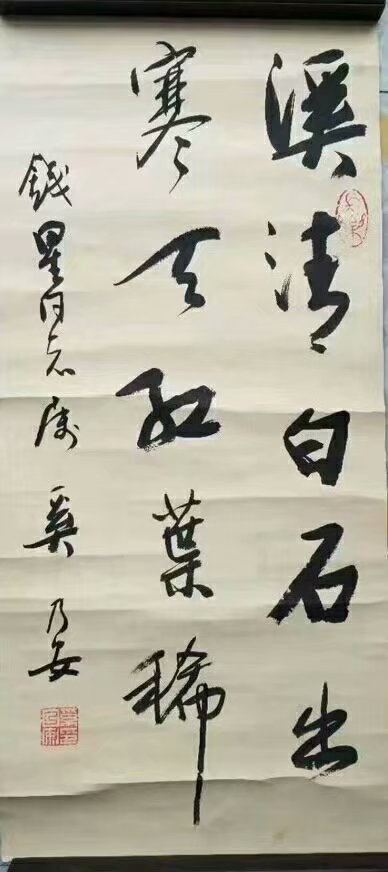 溪清白石出
寒天红葉稀
钱星同志属 奚乃安